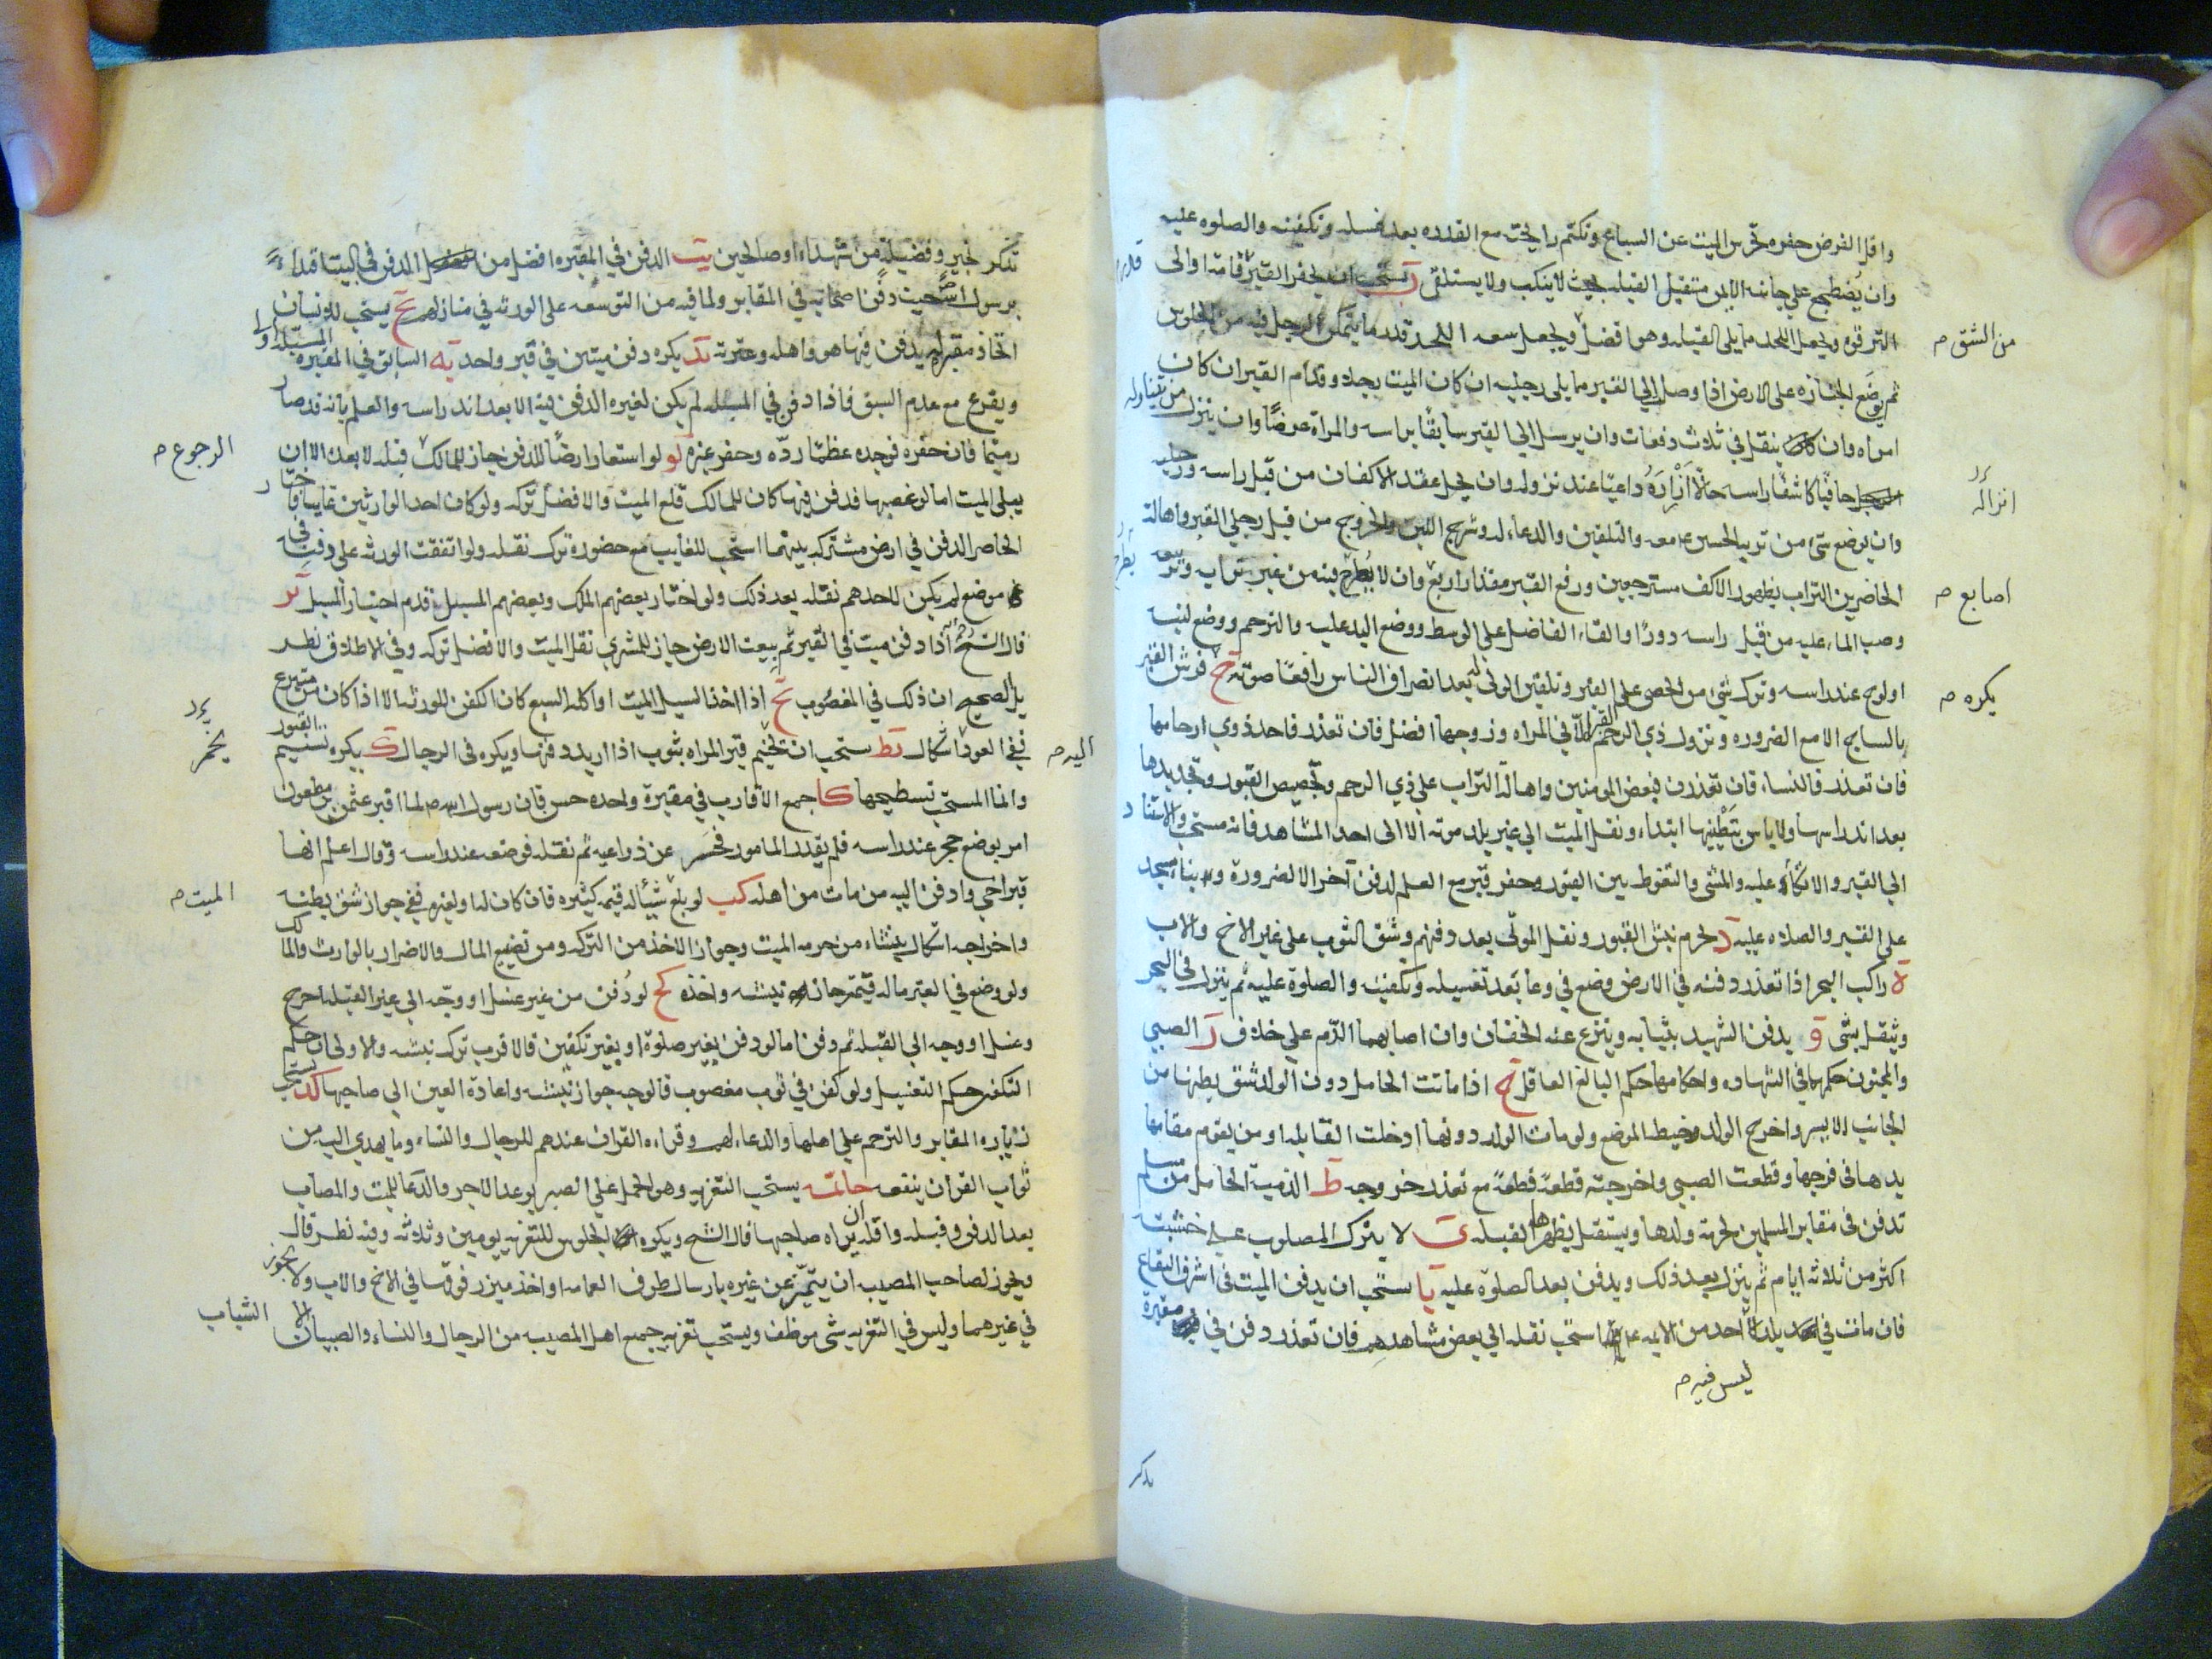 واقل الفرض حفره تحرس الميت عن السباع وتكتم رايحته مع القدره بعد غسله وتكفينه والصلوه عليه
وان يضطجع على جانبه الايمن مستقبل القبله بحيث لا ينكب ولا يستلقى ب يستحب ان يحفر القبر قامه او الى
الترقوه ويجعل اللحد مما يلى القبله وهو افضل ويجعل سعه اللحد قدر ما يتمكن الرجل فيه من الجلوس
من الشق
ثم يوضع الجنازه على الارض اذا وصل الى القبر مما يلى رجليه ان كان الميت رجلا وقدام القبر ان كان
امراه وان ينقل في ثلاث دفعات وان يرسل الى القبر سابقا براسه والمراه عرضا وان ينزل من يتناوله
حافيا كاشفا راسه حالا ازراره داعيا عند نزوله وان يحل عقد الاكفان من قبل راسه ورجليه
انزاله
وان يوضع شى من تربه الحسين ع معه والتلقين والدعاء له وشرج اللبن والخروج من قبل رجلي القبر واهاله
الحاضرين التراب بظهور الاكف مسترجعين ورفع القبر مقدار اربع وان لا يطرح فيه من غير ترابه وتربيعه
اصابع
وصب الماء عليه من قبل راسه دورا والقاء الفاضل على الوسط ووضع اليد عليه والترحم ووضع لبنه
او لوح عند راسه وترك شى من الحصى على القبر وتلقين الولى له بعد انصراف الناس رافعا صوته ج فرش القبر
يكره
بالساج الا مع الضروره ونزول ذي الرحم القبر الا في المراه وزوجها افضل فان تعذر فاحد ذوي ارحامها
فان تعذر فالنساء فان تعذرن فبعض المومنين واهاله التراب على ذي الرحم وتجصيص القبور وتجديدها
بعد اندراسها ولا باس بتطيينها ابتداء ونقل الميت الي غير بلد موته الا الى احد المشاهد فانه مستحب والاستناد
الي القبر والاتكاء عليه والمشى والتغوط بين القبور وحفر قبر مع العلم لدفن آخر الا لضرورة وبناء مسجد
على القبر والصلاه عليه د يحرم نبش القبور ونقل الموتى بعد دفنهم وشق الثوب على غير الاخ والاب
ه راكب البحر اذا تعذر دفنه في الارض وضع في وعا بعد تغسيله وتكفينه والصلوة عليه ثم ينزل في البحر
ويثقل بشى و يدفن الشهيد بثيابه وينزع عنه الخفان وان اصابهما الدم على خلاف ز الصبي
والمجنون حكمهما في الشهاده واحكامها حكم البالغ العاقل ح اذا ماتت الحامل دون الولد شق بطنها من
الجانب الايسر واخرج الولد وخيط الموضع ولو مات الولد دونها ادخلت القابله او من يقوم مقامها
يدها في فرجها وقطعت الصبي واخرجته قطعة قطعة مع تعذر خروجه ط الذميه الحامل من مسلم
تدفن في مقابر المسلمين لحرمه ولدها ويستقبل بظهرها القبله ى لا يترك المصلوب على خشبته
اكثر من ثلاثه ايام ثم ينزل بعد ذلك ويدفن بعد الصلوة عليه يا يستحب ان يدفن الميت في اشرف البقاع
فان مات في بلد احد من الايمه ع استحب نقله الي بعض مشاهدهم فان تعذر دفن في مقبره
ليس فيه
تذكر
تذكر بخير وفضيلة من شهداء او صالحين يب الدفن في المقبره افضل من الدفن في البيت اقتداء
برسول الله ص حيث دفن اصحابه في المقابر ولما فيه من التوسعه على الورثه في منازلهم يج يستحب للانسان
اتخاذ مقبره يدفن فيها هو واهله وعترته يد يكره دفن ميتين في قبر واحد يه السابق في المقبره المسبله اولى
ويقرع مع عدم السبق فاذا دفن في المسبله لم يكن لغيره الدفن فيه الا بعد اندراسه والعلم بانه قد صار
رميما فان حفره فوجد عظما رده وحفر غيره يو لو استعار ارضا للدفن جاز للمالك قبله لا بعده الا ان
الرجوع
يبلى الميت اما لو غصبها فدفن فيها كان للمالك قلع الميت والافضل تركه ولو كان احد الوارثين غايبا فاختار
الحاضر الدفن في ارض مشتركه بينهما استحب للغايب مع حضوره ترك نقله ولو اتفقت الورثه على دفنه
في موضع لم يكن لاحدهم نقله بعد ذلك ولو اختار بعضهم الملك وبعضهم المسبل قدم اختيار المسبل يز
قال الشيخ اذا دفن ميت في القبر ثم بيعت الارض جاز للمشترى نقل الميت والافضل تركه وفي الاطلاق نظر
بل الصحيح ان ذلك في المغصوب يح اذا اخذ السيل الميت او اكله السبع كان الكفن للورثه الا اذا كان من متبرع
ففي العود اشكال يط يستحب ان تخيم قبر المراه بثوب اذا اريد دفنها ويكره في الرجال ك يكره تسنيم القبور
اليه
وانما المستحب تسطيحها كا جمع الاقارب في مقبرة واحده حسن فان رسول الله ص لما اقبر عثمن بن مظعون
امر بوضع حجر عند راسه فلم يقدر المامور فحسر عن ذراعيه ثم نقله فوضعه عند راسه وقال اعلم انها
قبر اخي وادفن اليه من مات من اهله كب لو بلع شيئا له قيمه كثيره فان كان له او لغيره ففي جواز شق بطنه
الميت
واخراجه اشكال ينشاء من حرمه الميت وجواز الاخذ من التركه ومن تضييع المال والاضرار بالوارث والمالك
ولو وضع في القبر ما له قيمه جاز نبشه واخذه كج لو دفن من غير غسل او وجه الي غير القبله اخرج
وغسل او وجه الي القبله ثم دفن اما لو دفن بغير صلوة او بغير تكفين فالاقرب ترك نبشه والاولى ان حكم
التكفين حكم التغسيل ولو كفن في ثوب مغصوب فالوجه جواز نبشه واعادة العين الى صاحبها كد يستحب
زياره المقابر والترحم على اهلها والدعاء لهم وقراءه القران عندهم للرجال والنساء وما يهدي اليه من
ثواب القران ينفعه خاتمه يستحب التعزيه وهو الحمل على الصبر بوعد الاجر والدعاء للميت والمصاب
بعد الدفن وقبله واقله ان يراه صاحبها قال الشيخ ويكره الجلوس للتعزيه يومين وثلاثه وفيه نظر قال
ويجوز لصاحب المصيبه ان يتميز عن غيره بارسال طرف العمامه او اخذ ميزر فوقها في الاخ والاب ولا يجوز
في غيرهما وليس في التعزيه شى موظف ويستحب تعزيه جميع اهل المصيبه من الرجال والنساء والصبيان الا
الشياب